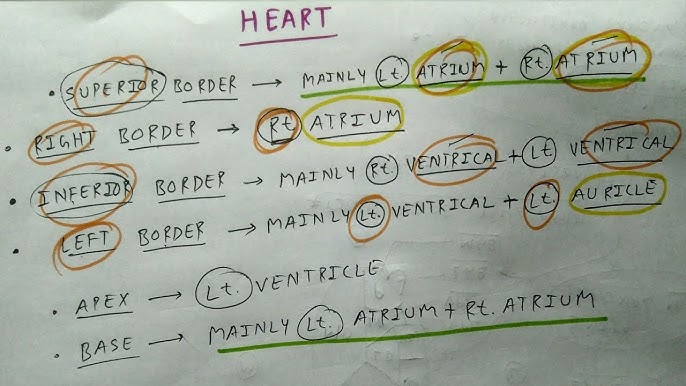 HEART
• SUPERIOR BORDER → MAINLY Lt. ATRIUM + Rt. ATRIUM
• RIGHT BORDER → Rt. ATRIUM
• INFERIOR BORDER → MAINLY Rt. VENTRICAL + Lt. VENTRICAL
• LEFT BORDER → MAINLY Lt. VENTRICAL + Lt. AURICLE
• APEX → Lt. VENTRICLE
• BASE → MAINLY Lt. ATRIUM + Rt. ATRIUM